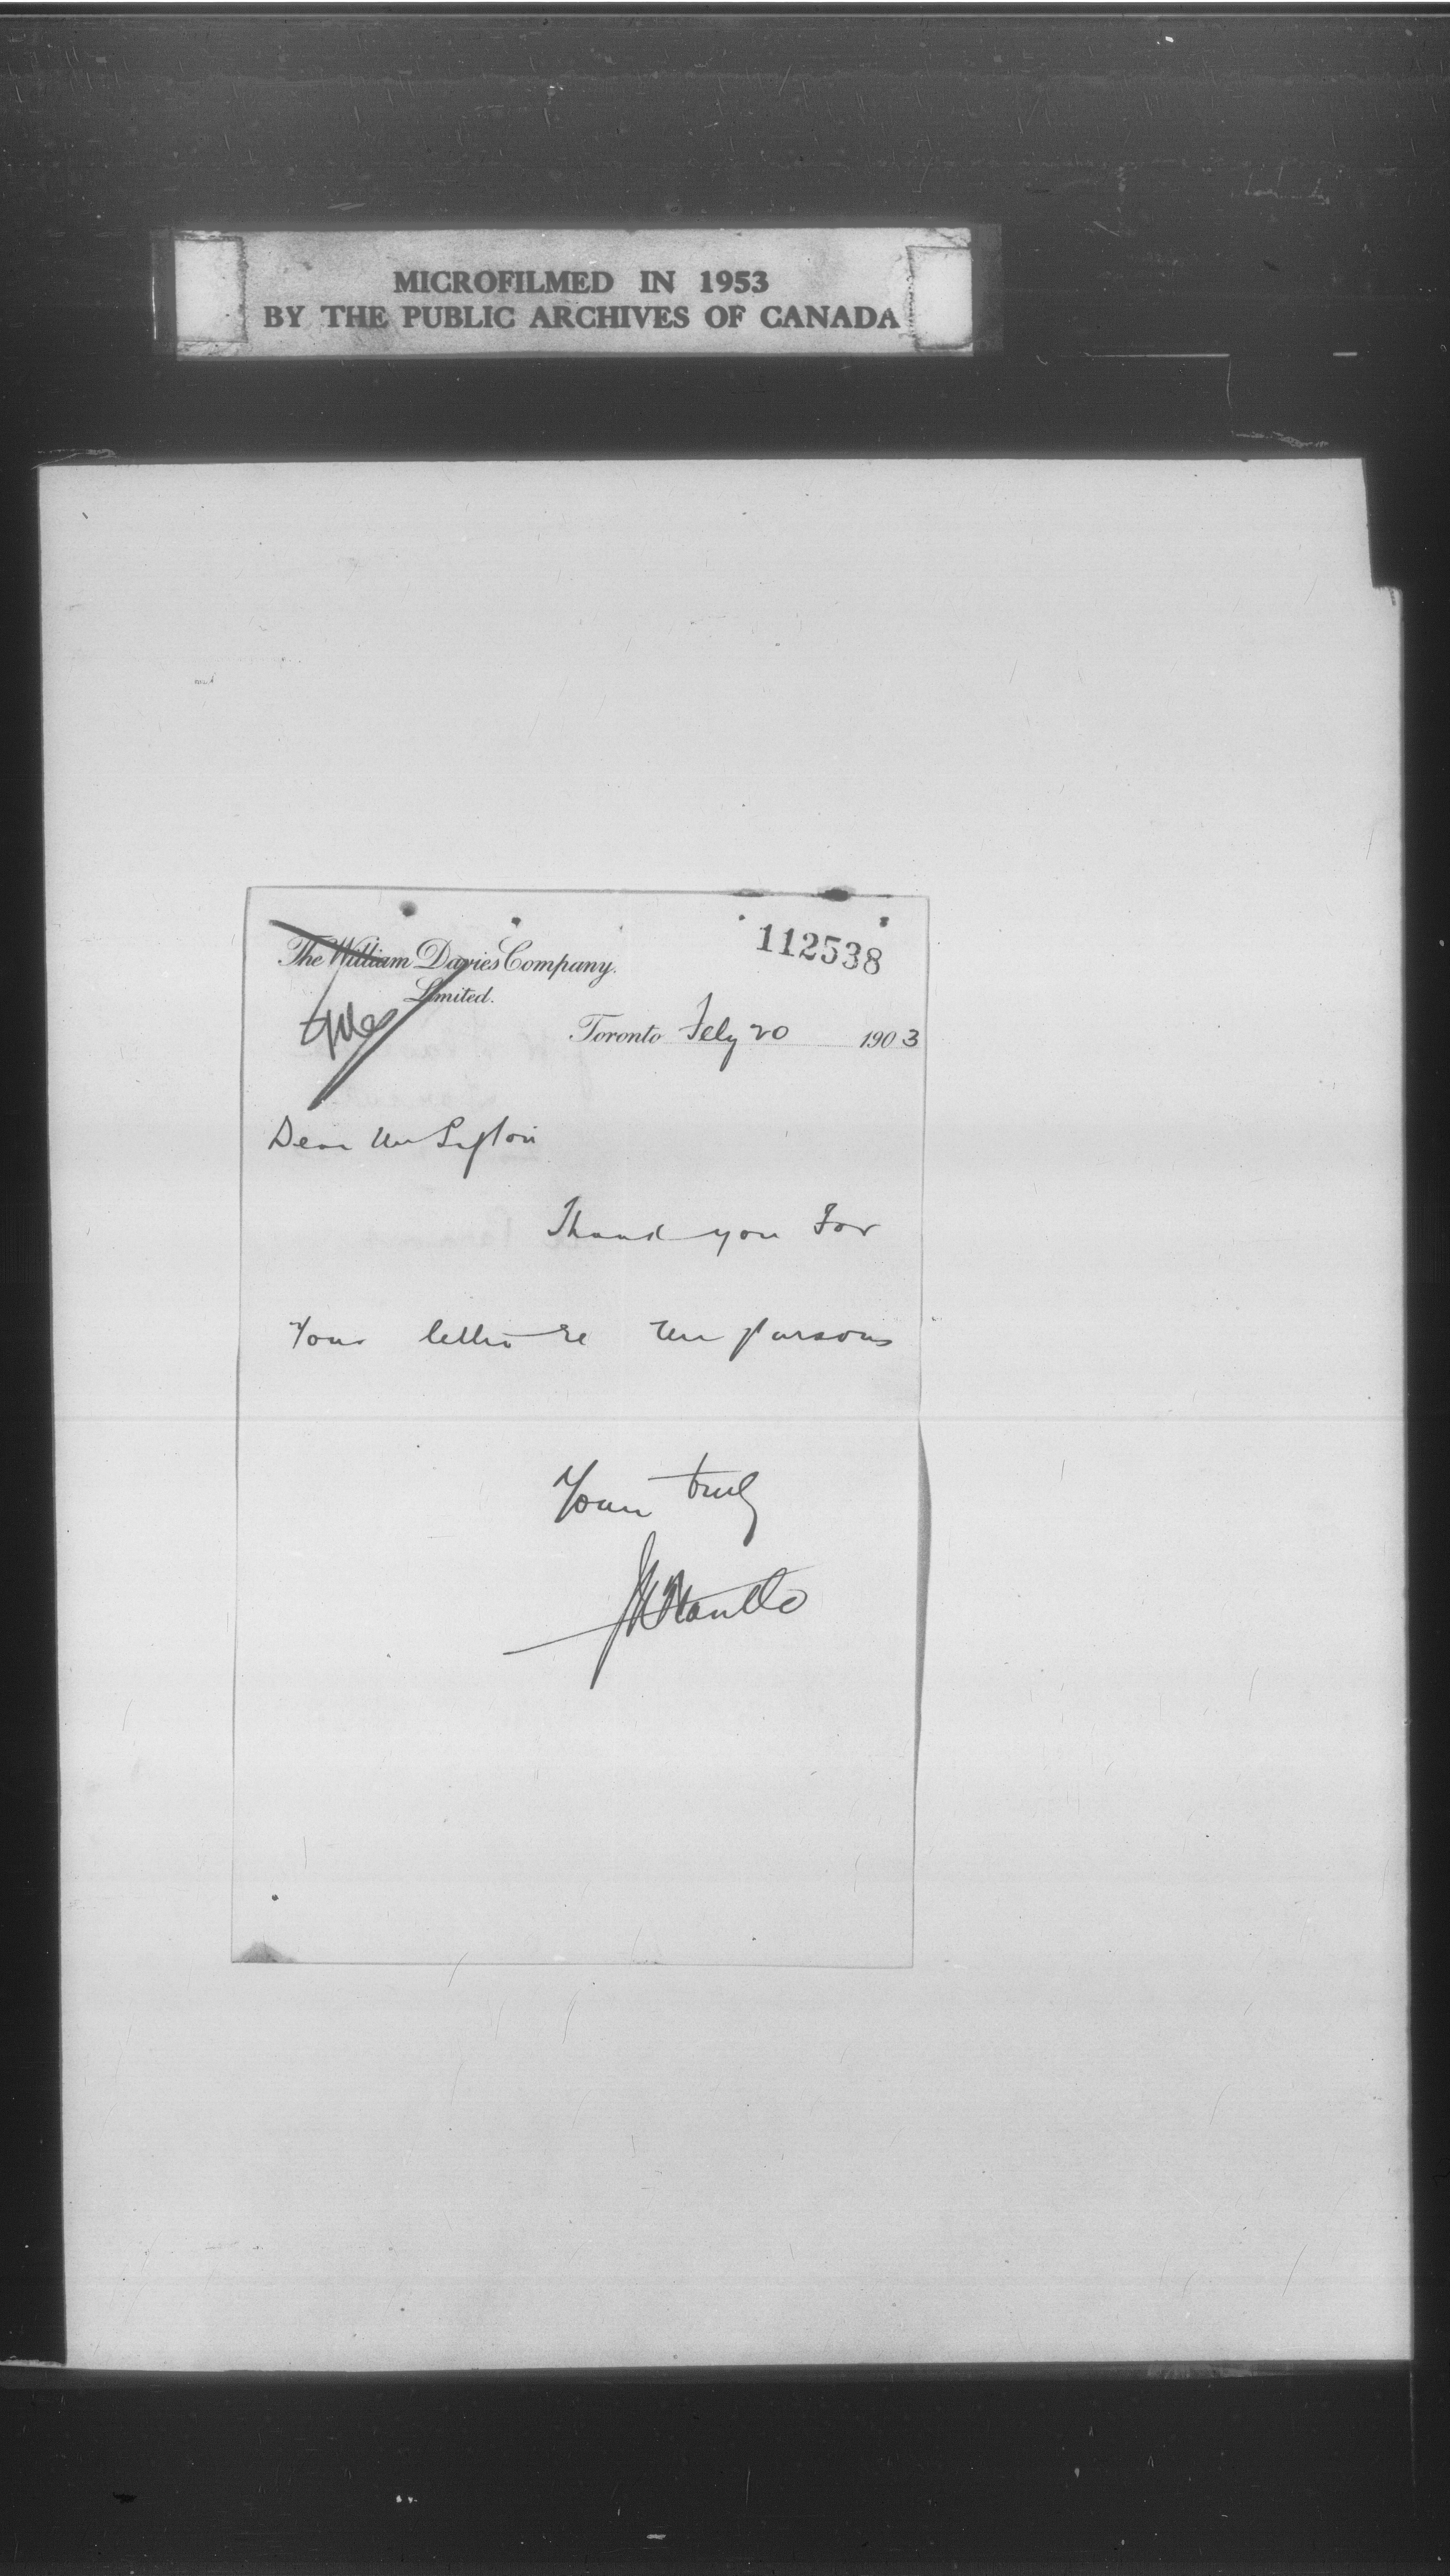 MICROFILMED IN 1953
BY THE PUBLIC ARCHIVES OF CANADA
112538
The William Davies Company.
Limited.
Toronto Feby 20 1903
Dear Mr Sifton
Thank you for
Your letter re Mr Parsons
Yours truly